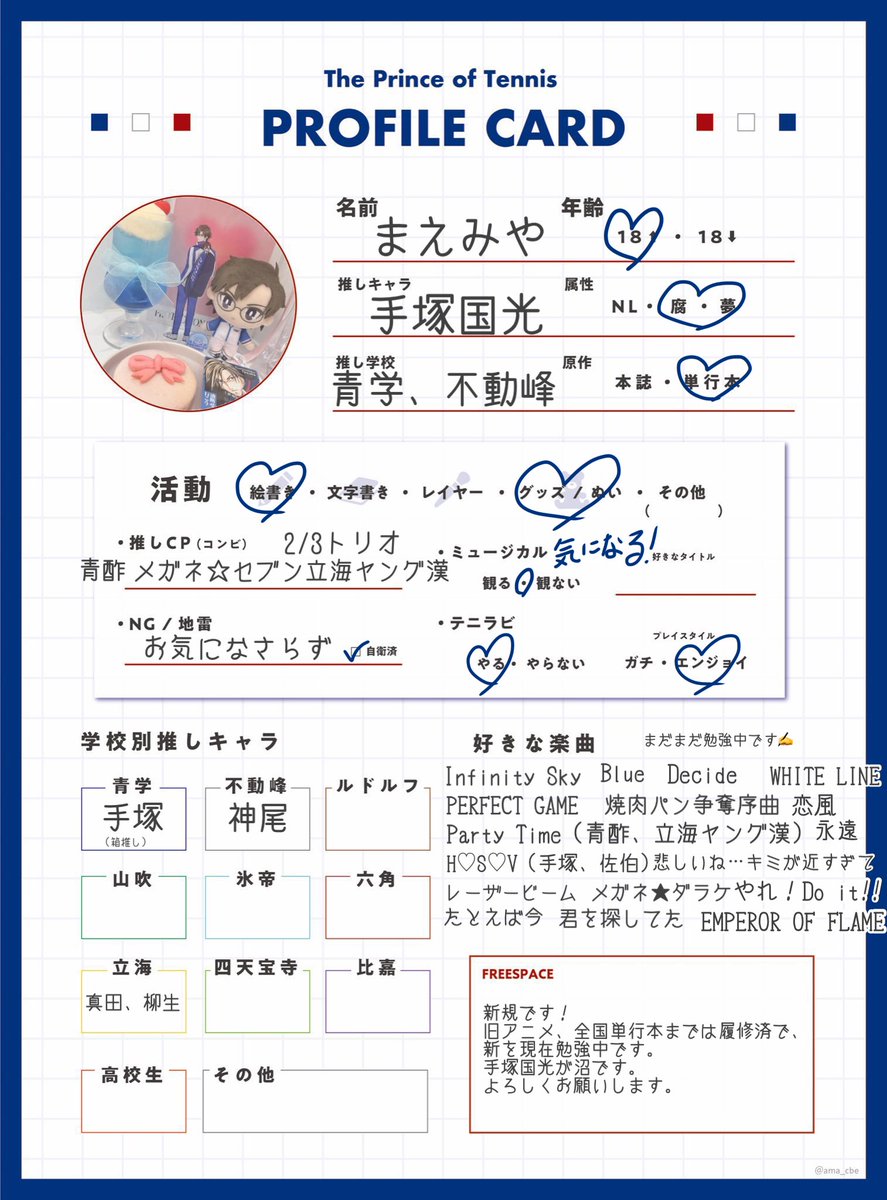 The Prince of Tennis
PROFILE CARD
名前 まえみや
年齢 18⬆・18⬇
推しキャラ 手塚国光
属性 NL・腐・夢
推し学校 青学、不動峰
原作 本誌・単行本
活動 絵書き・文字書き・レイヤー・グッズ/ぬい・その他
( )
・推しCP(コンビ) 2/3トリオ
青酢 メガネ☆セブン立海ヤング漢
・ミュージカル 気になる! 好きなタイトル
観る・観ない
・NG/地雷
お気になさらず ✓自衛済
・テニラビ プレイスタイル
やる・やらない ガチ・エンジョイ
学校別推しキャラ
青学 不動峰 ルドルフ
手塚 神尾
(箱推し)
山吹 氷帝 六角
立海 四天宝寺 比嘉
真田、柳生
高校生 その他
好きな楽曲 まだまだ勉強中です✍
Infinity Sky Blue Decide WHITE LINE
PERFECT GAME 焼肉パン争奪序曲 恋風
Party Time(青酢、立海ヤング漢)永遠
H♡S♡V(手塚、佐伯)悲しいね…キミが近すぎて
レーザービーム メガネ★ダラケやれ!Do it!!
たとえば今 君を探してた EMPEROR OF FLAME
FREESPACE
新規です!
旧アニメ、全国単行本までは履修済で、
新を現在勉強中です。
手塚国光が沼です。
よろしくお願いします。
@ama_cbe